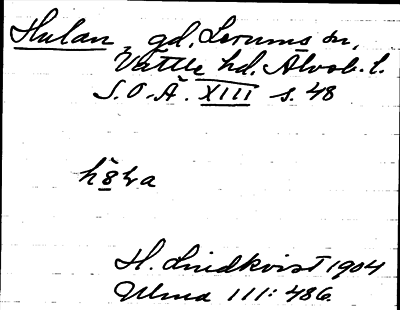 Hulan, gd, Lerums sn,
Vättle hd. Älvsb. l.
S.O.Ä. XIII s. 48
H. Lindkvist 1904
Ulma 111: 486.